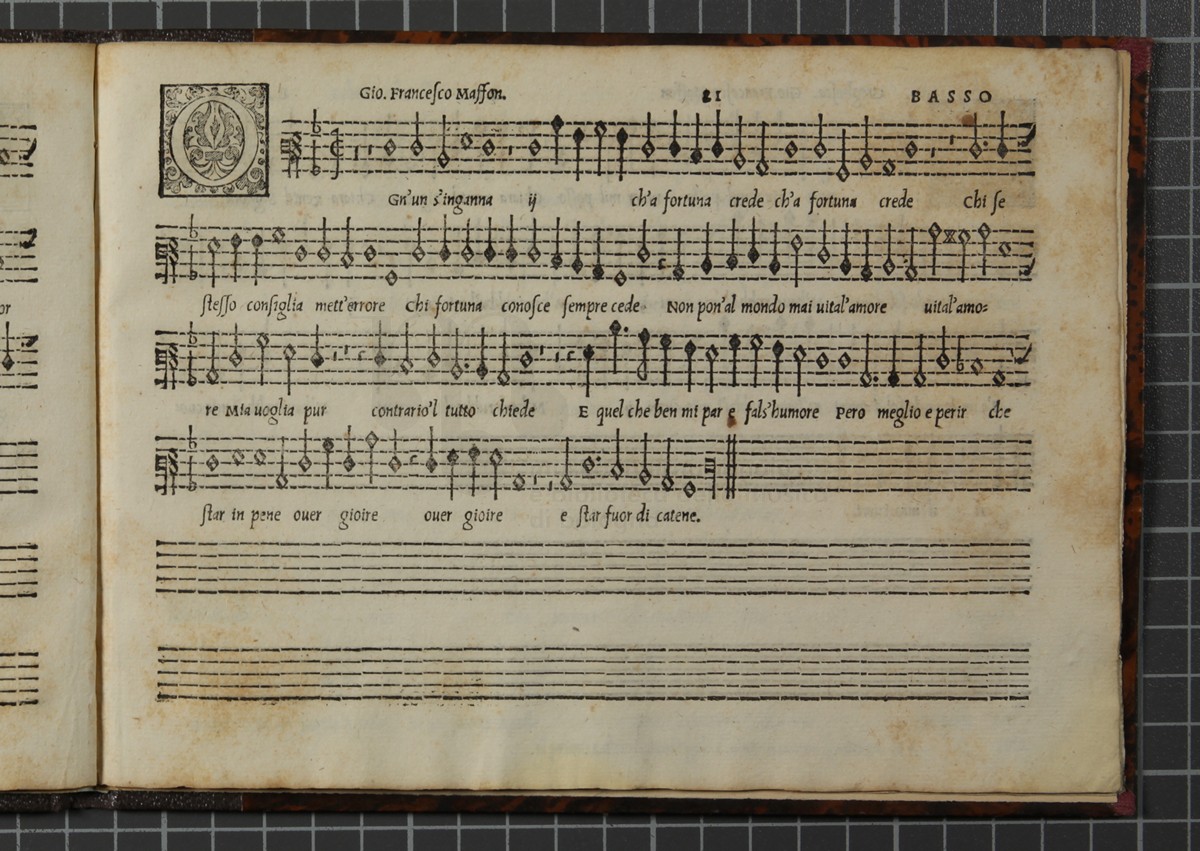 Gio. Franceſco Maſſon. 21 BASSO
OGn'un s'inganna ij ch'a fortuna crede ch'a fortuna crede Chi ſe
ſteſſo conſiglia mett'errore Chi fortuna conoſce ſempre cede Non pon'al mondo mai uital'amore uital'amo=
re Mia uoglia pur contrario'l tutto chiede E quel che ben mi par e fals'humore Pero meglio e perir che
ſtar in pene ouer gioire ouer gioire e ſtar fuor di catene.
or